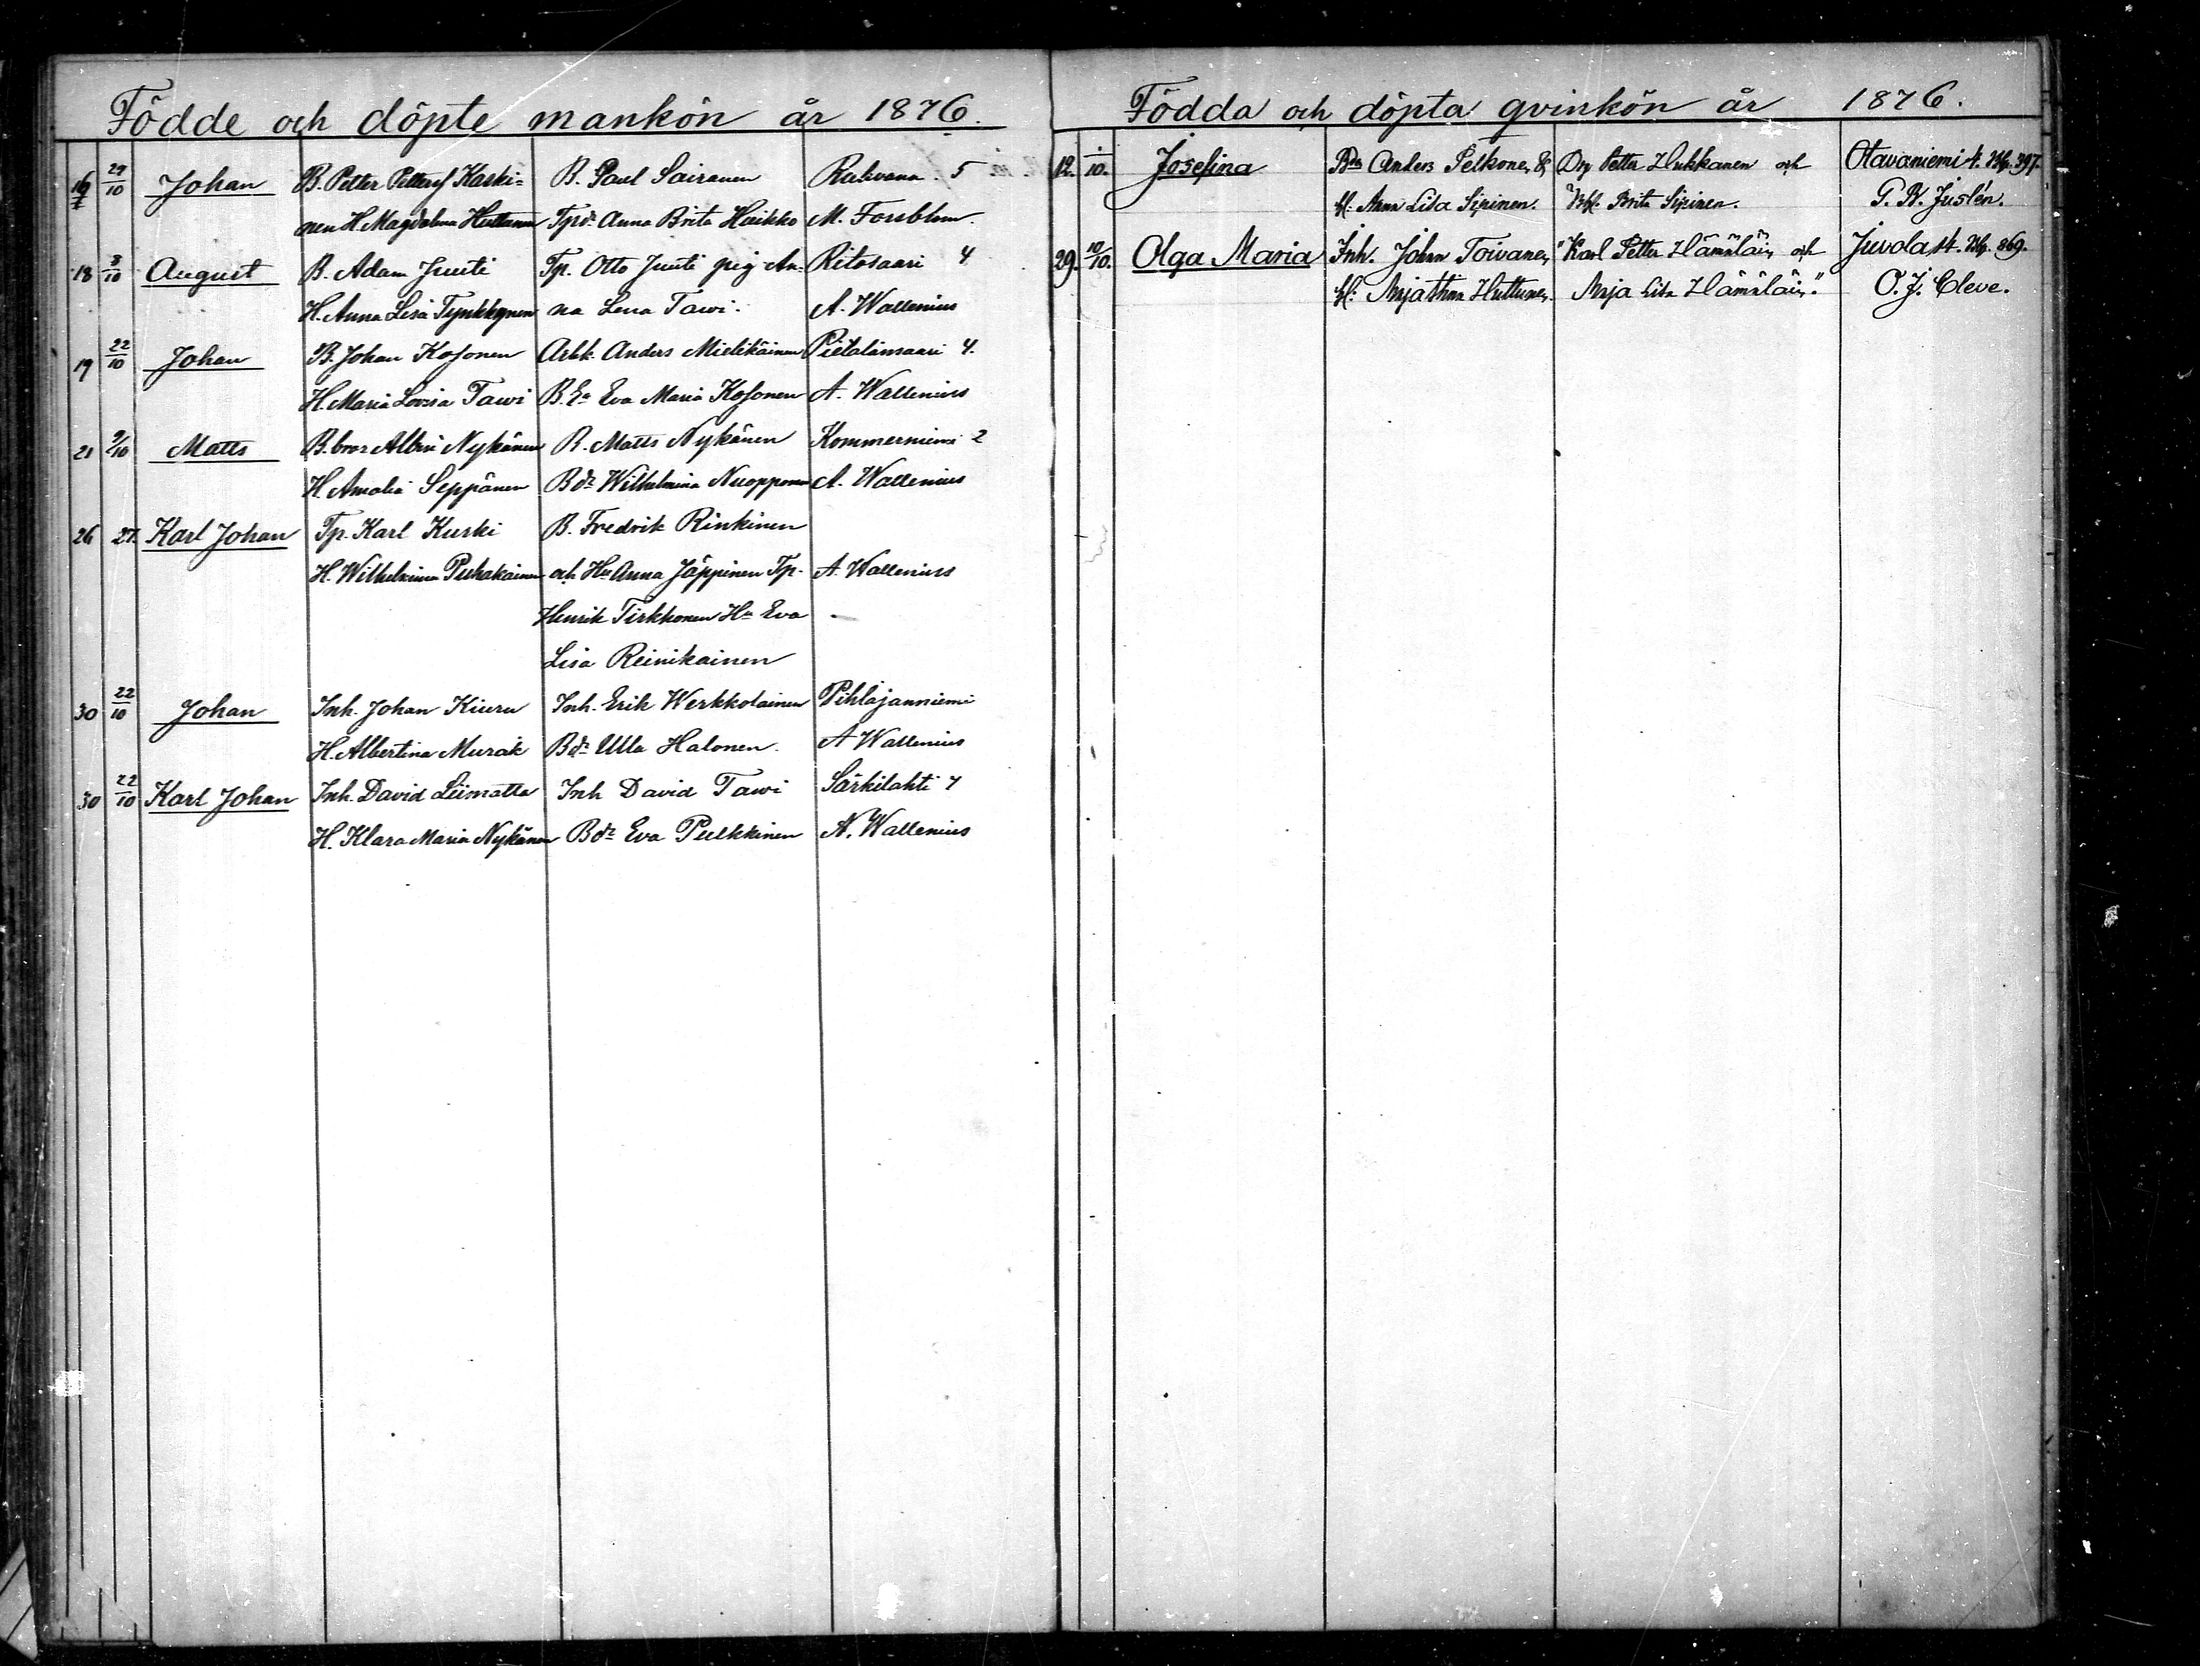 Födde och döpte mankön år 1876.
16 29/10 Johan B. Petter Pettersf Kaski= B. Paul Sairanen Ruhvana 5
nen H. Magdalena Huttunen Tpdr Anna Brita Haikko M. Forsblom
18 8/10 August B. Adam Juuti Tp. Otto Juuti pig An- Ritosaari 4
H. Anna Lisa Tynkkynen na Lena Tawi. A. Wallenius
19 22/10 Johan B. Johan Kosonen Arbk. Anders Mielikäinen Pietolansaari 4.
H. Maria Lovisa Tawi B. Ea Eva Maria Kosonen A. Wallenius
21 9/10 Matts B. bror Albin Nykänen B. Matts Nykänen Kommerniemi 2
H. Amalia Seppänen Bdr Wilhelmina Nuopponen A. Wallenius
26 27. Karl Johan Tp. Karl Kurki B. Fredrik Rinkinen
H. Wilhelmina Puhakainen och Hu Anna Jäppinen Tp. A. Wallenius
Henrik Tirkkonen Hu Eva —
Lisa Reinikainen
30 22/10 Johan Inh. Johan Kiuru Inh. Erik Werkkolainen Pihlajanniemi
H. Albertina Murak Bdr Ulla Halonen. A Wallenius
30 22/10 Karl Johan Inh. David Liimatta Inh David Tawi Särkilahti 7
H. Klara Maria Nykänen Bdr Eva Pulkkinen A. Wallenius
Födda och döpta qvinkön år 1876.
12. 1/10. Josefina Bds Anders Pelkonen & Petter Hukkanen och Otavaniemi 4. 397.
H: Anna Lisa Sipinen. Brita Sipinen. G. W. Juslén.
29. 10/10. Olga Maria Inh. Johan Toivanen "Karl Petter Hämäläin och Juvola 14. 869.
H: Maja Stina Huttunen. Maja Lisa Hämäläin." O. J. Cleve.